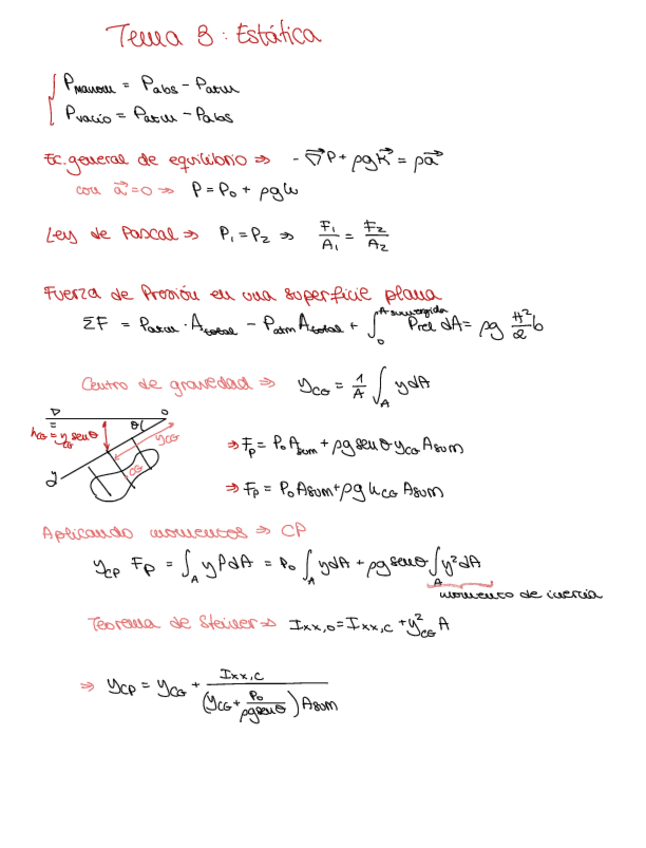 Tema 3: Estática
P_manom = P_abs - P_atm
P_vacío = P_atm - P_abs
Ec. general de equilibrio ⇒ -∇⃗P + ρgk⃗ = ρa⃗
con a⃗=0 ⇒ P = P₀ + ρgh
Ley de Pascal ⇒ P₁ = P₂ ⇒ F₁/A₁ = F₂/A₂
Fuerza de Presión en una superficie plana
ΣF = P_atm · A_total - P_atm A_total + ∫₀^(A sumergida) P_rel dA = ρg H²/2 b
Centro de gravedad ⇒ y_CG = 1/A ∫_A y dA
h_CG = y_CG senθ
θ
O
y_CG
CG
y
⇒ F_p = P₀ A_sum + ρg senθ y_CG A_sum
⇒ F_p = P₀ A_sum + ρg h_CG A_sum
Aplicando momentos ⇒ CP
y_CP F_p = ∫_A y P dA = P₀ ∫_A y dA + ρg senθ ∫_A y² dA
momento de inercia
Teorema de Steiner ⇒ I_xx,o = I_xx,c + y²_CG A
⇒ y_CP = y_CG + I_xx,c / ((y_CG + P₀/(ρg senθ)) A_sum)